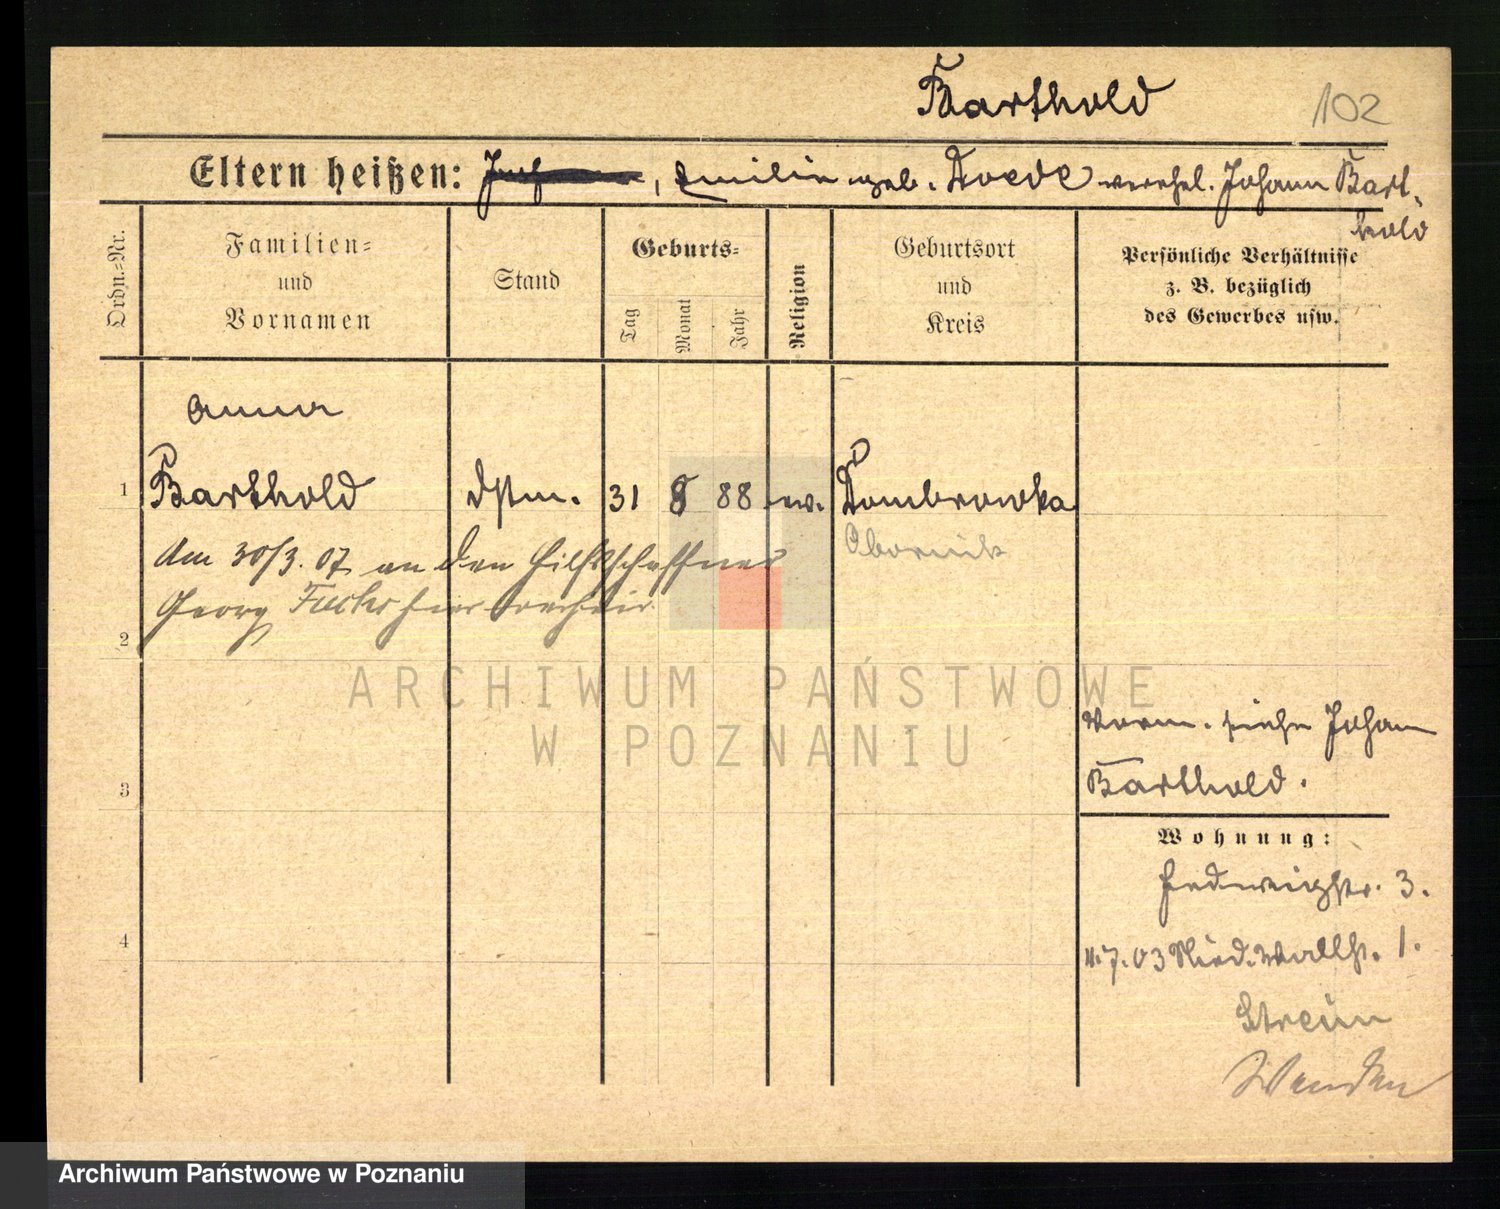 Barthold 102
Eltern heißen: Emilie geb. Doede verehel. Johann Bart-
hold
Ordn.-Nr.
Familien-
und
Vornamen
Stand
Geburts-
Tag
Monat
Jahr
Religion
Geburtsort
und
Kreis
Persönliche Verhältnisse
z. B. bezüglich
des Gewerbes usw.
Anna
1 Barthold Dstm. 31 8 88 ev. Dombrowka
Obornik
Am 30/3. 07 an den Hilfsschaffner
Georg Fuchs hier verheir.
2
ARCHIWUM PAŃSTWOWE
W POZNANIU
Vorm. siehe Johann
Barthold.
3
Wohnung:
Hedwigstr. 3.
4
11.7.03 Nied. Wallstr. 1.
Archiwum Państwowe w Poznaniu